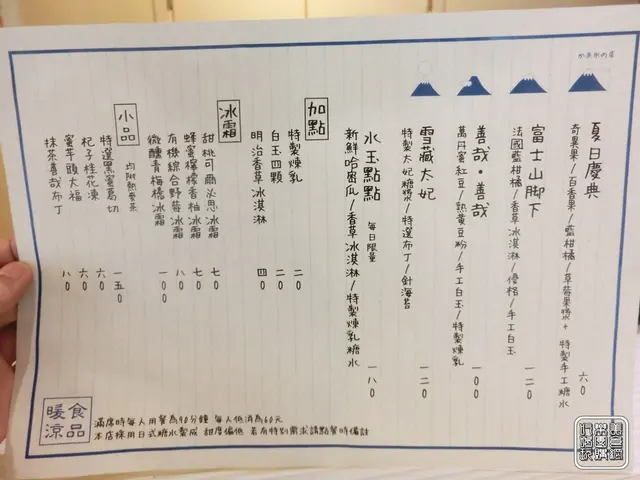 夏日慶典
奇異果/百香果/藍柑橘/草莓果漿+ 特製手工糖水 六0
富士山腳下
法國藍柑橘/香草冰淇淋/優格/手工白玉 一二0
善哉·善哉
萬丹蜜紅豆/熟黃豆粉/手工白玉/特製煉乳 一00
雪藏太妃
特製太妃糖漿/特選布丁/針海苔 一二0
水玉點點 每日限量
新鮮哈密瓜/香草冰淇淋/特製煉乳糖水 一八0
加點
特製煉乳 二0
白玉四顆 二0
明治香草冰淇淋 四0
冰霜
甜桃可爾必思冰霜 七0
蜂蜜檸檬香柚冰霜 七0
有機綜合野莓冰霜 八0
微醺青梅橋冰霜 一00
小品 均附熱煎茶
特選黑蜜葛切 一五0
杞子桂花凍 六0
蜜芋頭大福 六0
抹茶善哉布丁 八0
暖食
涼品
滿席時每人用餐為90分鐘 每人低消為60元
本店採用日式糖水製成 甜度偏低 若有特別需求請點餐時備註